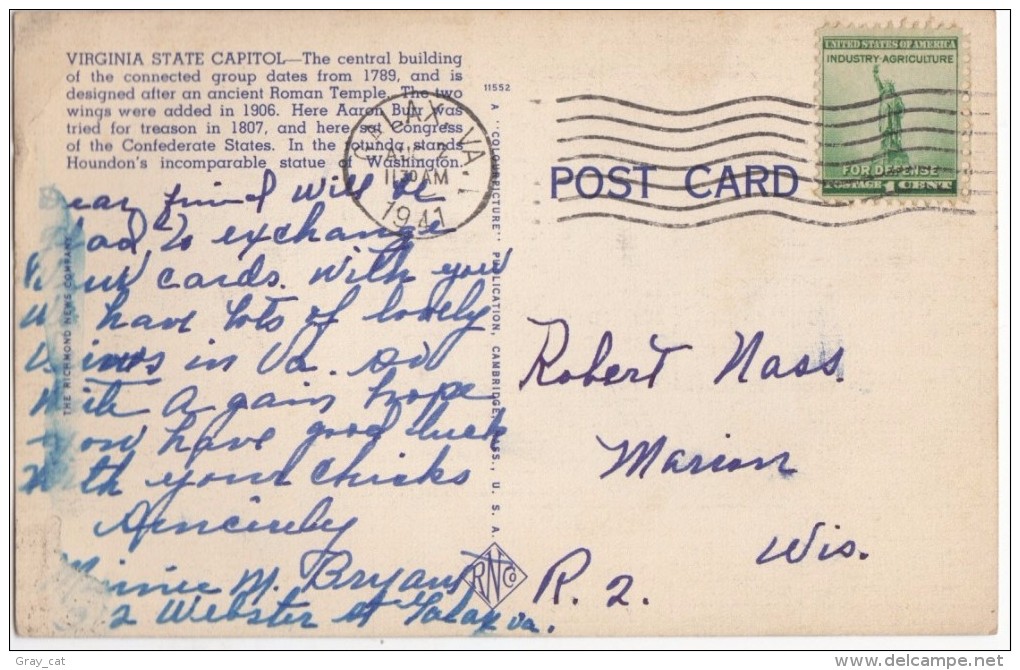 VIRGINIA STATE CAPITOL—The central building
of the connected group dates from 1789, and is
designed after an ancient Roman Temple. The two
wings were added in 1906. Here Aaron Burr was
tried for treason in 1807, and here sat Congress
of the Confederate States. In the rotunda stands
Houndon's incomparable statue of Washington.
Dear friend will be
glad to exchange
cards. With you
we have lots of lovely
views in Va. so
write again hope
you have good luck
with your chicks
Sincerely
Minnie M. Bryant
2 Webster st Galax va.
THE RICHMOND NEWS COMPANY
11552
A "COLOURPICTURE" PUBLICATION, CAMBRIDGE, MASS., U. S. A.
RNCo
GALAX VA.
AUG 2
1130 AM
1941
POST CARD
UNITED STATES OF AMERICA
INDUSTRY·AGRICULTURE
FOR DEFENSE
POSTAGE 1 CENT
Robert Nass.
Marion
Wis.
R. 2.
Gray_cat
delcampe.net